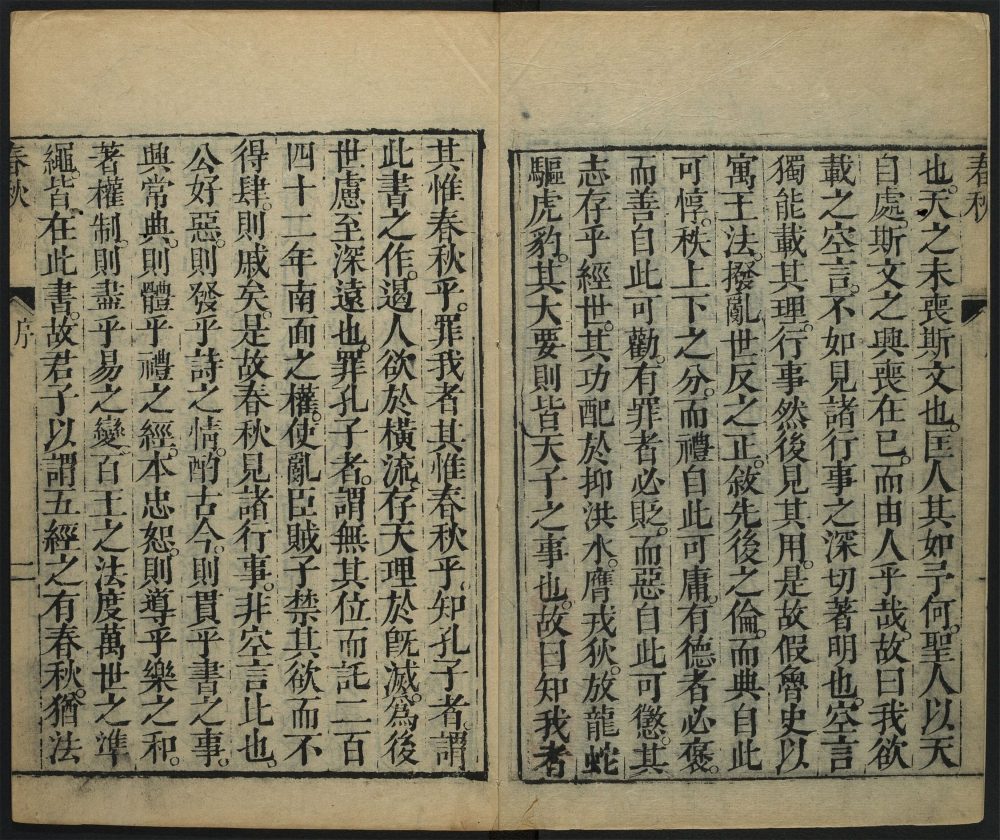 春秋
也。天之未喪斯文也。匡人其如予何。聖人以天
自處。斯文之興喪在已。而由人乎哉。故曰我欲
載之空言。不如見諸行事之深切著明也。空言
獨能載其理。行事然後見其用。是故假魯史以
寓王法。撥亂世反之正。敘先後之倫。而典自此
可惇。秩上下之分。而禮自此可庸。有德者必褒。
而善自此可勸。有罪者必貶。而惡自此可懲。其
志存乎經世。其功配於抑洪水。膺戎狄。放龍蛇
驅虎豹。其大要則皆天子之事也。故曰知我者
其惟春秋乎。罪我者其惟春秋乎。知孔子者。謂
此書之作。遏人欲於橫流。存天理於旣滅。爲後
世慮至深遠也。罪孔子者。謂無其位而託二百
四十二年南面之權。使亂臣賊子禁其欲而不
得肆。則戚矣。是故春秋見諸行事。非空言此也。
公好惡。則發乎詩之情。酌古今。則貫乎書之事。
興常典。則體乎禮之經。本忠恕。則導乎樂之和。
著權制。則盡乎易之變。百王之法度萬世之準
繩。皆在此書。故君子以謂五經之有春秋。猶法
春秋
序
二